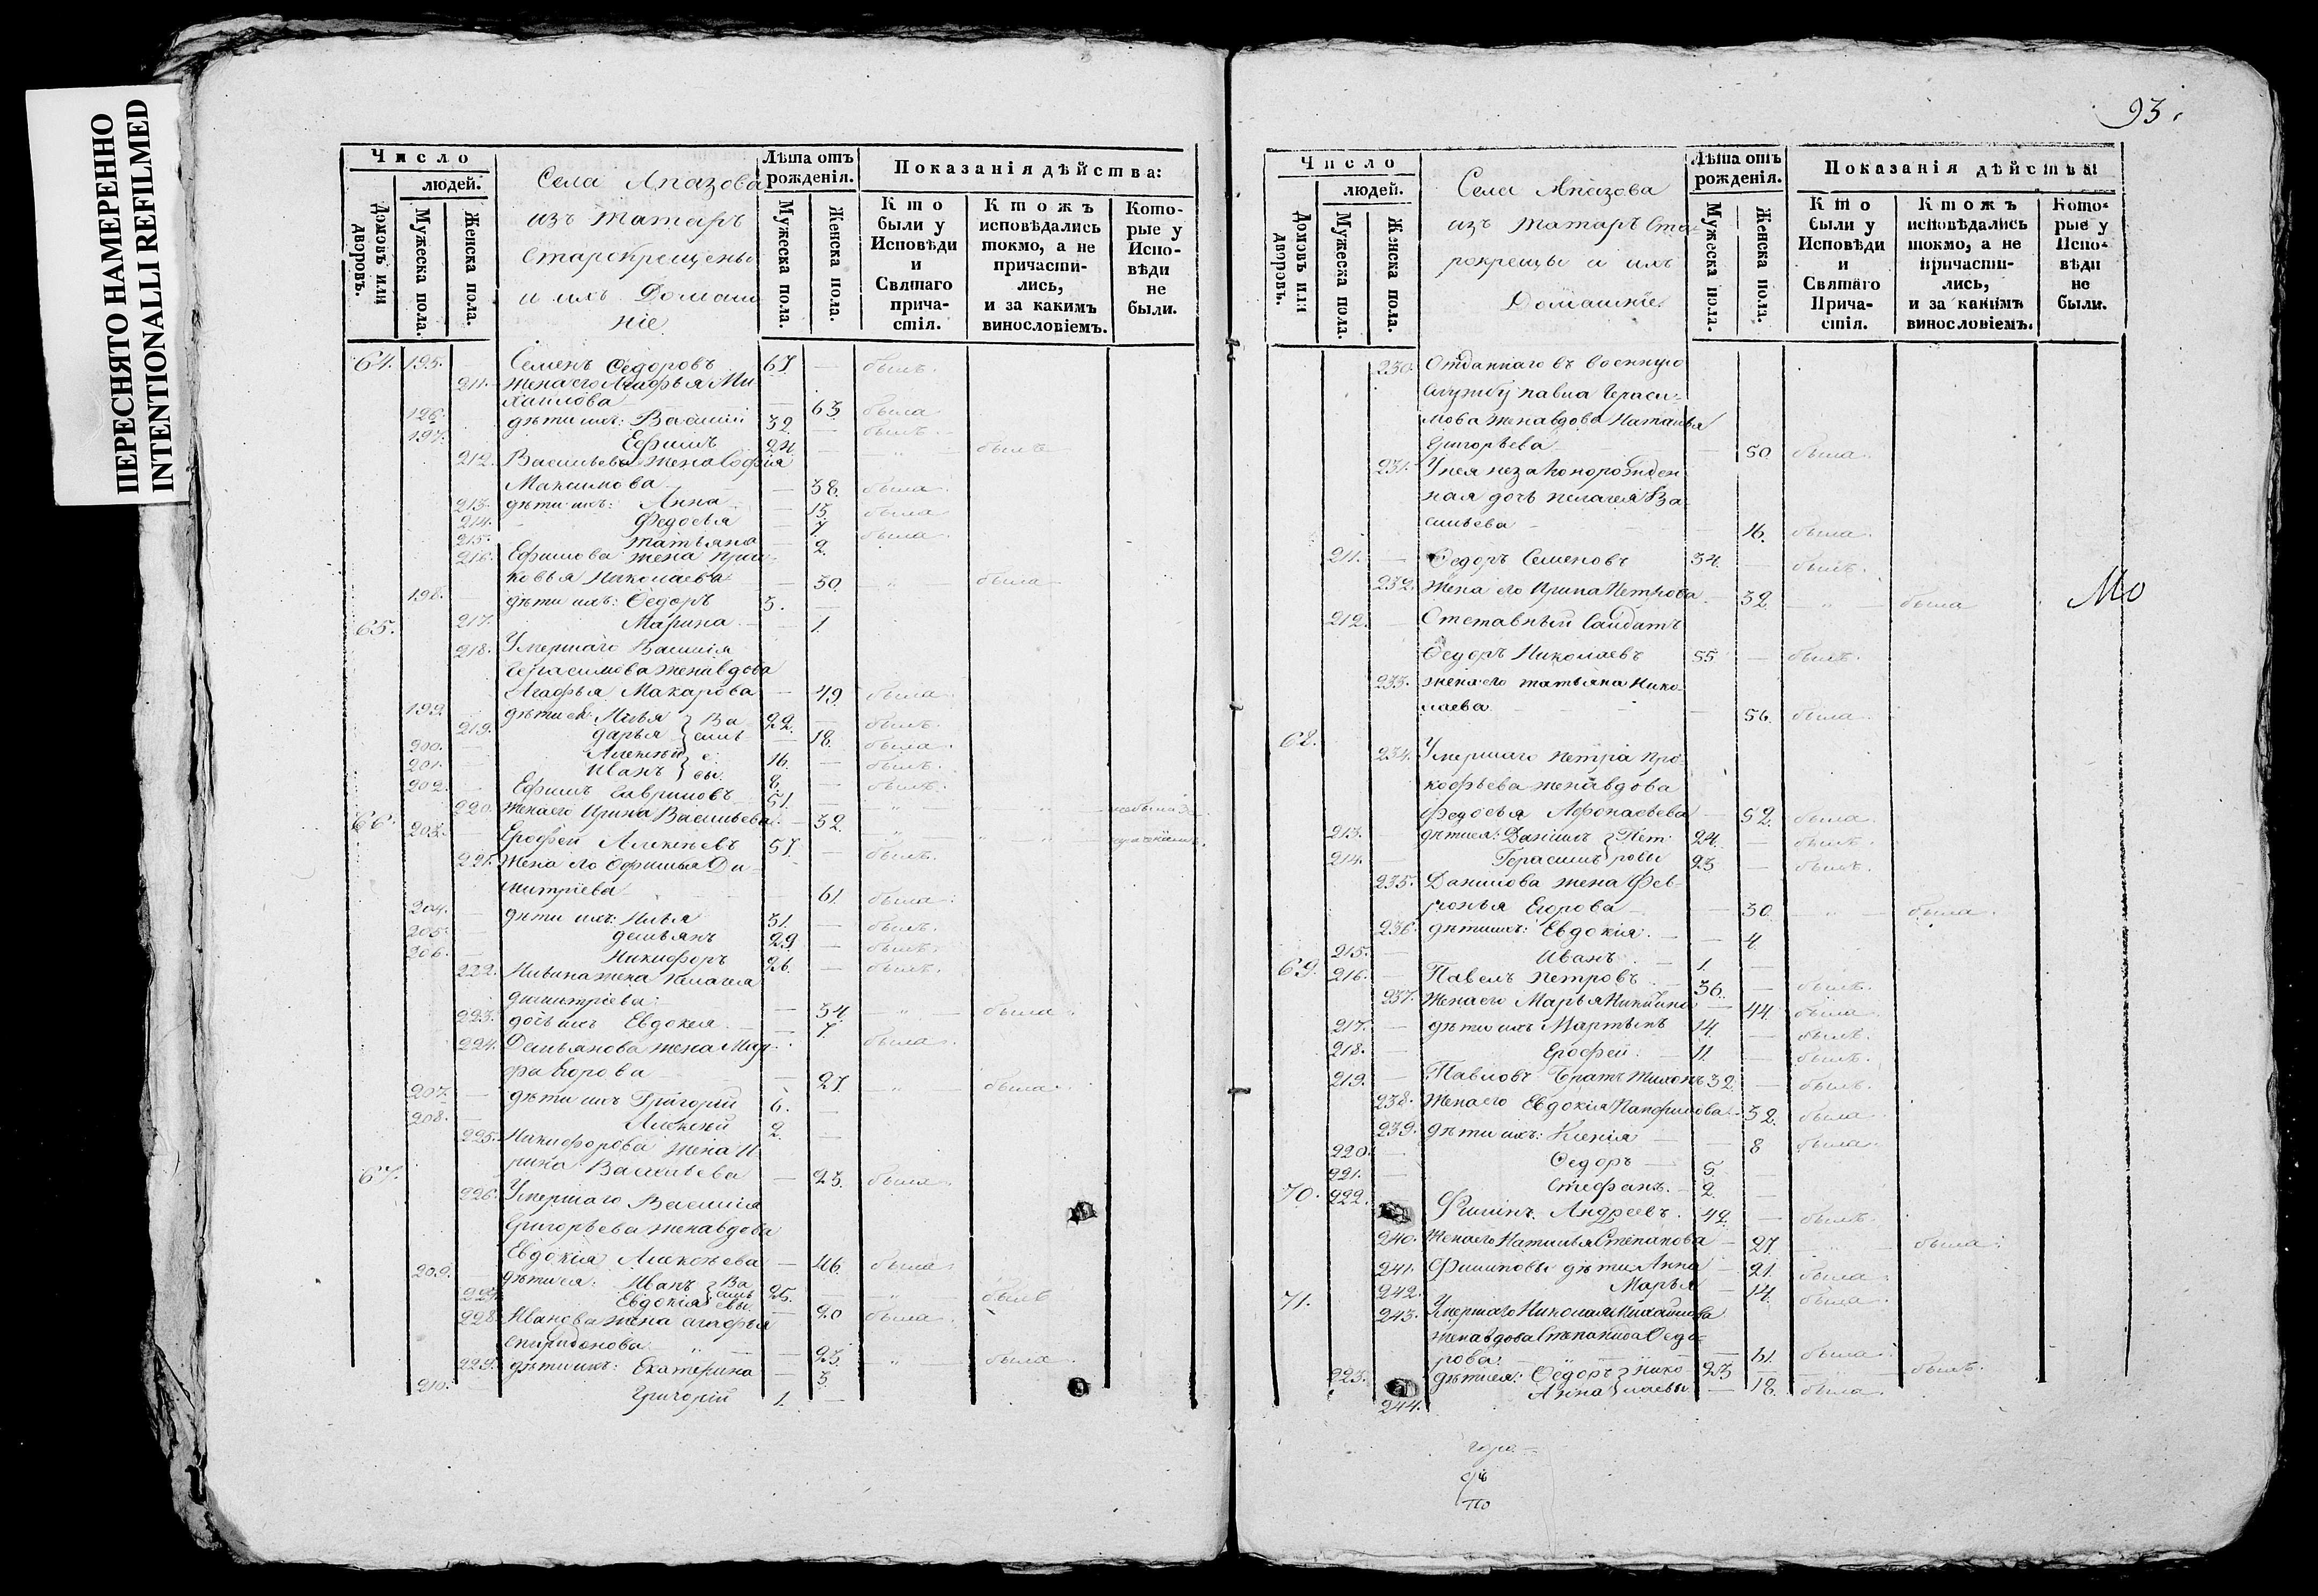 ПЕРЕСНЯТО НАМЕРЕННО
INTENTIONALLI REFILMED
Число
людей.
Домовъ или дворовъ.
Мужеска пола.
Женска пола.
Села Апазова
изъ татаръ
старокрещены
и ихъ Домаш
ніе
Лѣта отъ рожденія.
Мужеска пола.
Женска пола.
Показанія дѣйства:
Кто были у Исповѣди и Святаго причастія.
Ктожъ исповѣдались токмо, а не причастились, и за какимъ винословіемъ.
Которые у Исповѣди не были.
64. 195. Семенъ Ѳедоровъ 67 былъ.
211. жена его Агафья Ми
хаилова 63 была
196. дѣти ихъ: Василій 39 былъ.
197. Ефимъ 24 былъ
212. Васильева жена Софія
Максимова 38. была.
213. дѣти ихъ: Анна 15 была
214. Федосья 7 была.
215. татьяна 2.
216. Ефимова жена прас
ковья Николаева 30 была
198. дѣти ихъ: Ѳедоръ 3.
217. Марина 1.
65.
218. Умершаго Василія
Герасимова жена вдова
Агафья Макарова 49 была.
199. дѣти ея: Илья Ва 22. былъ.
219. дарья силь 18. была.
200. Алексѣй е 16. былъ.
201. Иванъ вы. 8. былъ.
202. Ефимъ Гавриловъ 51.
220. жена его Ирина Васильева 32.
66. 203. Ерофей Алексѣевъ 57 былъ.
221. Жена его Офимья Ди
митріева 61. была:
204. дѣти ихъ: Илья 31. былъ.
205. демьянъ 29 былъ.
206. Никифоръ 26. былъ.
222. Ильина жена пелагея
димитріева: 34. была.
223. дочь ихъ Евдокея 7. была.
224. Демьянова жена Мар
фа Егорова 27 была.
207. дѣти ихъ Григорій 6.
208. Алексѣй 2.
225. Никифорова жена И
рина Васильева 23. была.
67.
226. Умершаго Василія
Григорьева жена вдова
Евдокія Алексѣева 46. была.
209. дѣти ея: Иванъ Ва 25. былъ
227. Евдокія силь евы. 20 была.
228. Иванова жена агафья
спиридонова 23. была.
229. дѣти ихъ: Екатерина 3.
210. Григорій 1.
93.
Число
людей.
Домовъ или дворовъ.
Мужеска пола.
Женска пола.
Села Апазова
изъ татаръ Ста
рокрещы и ихъ
Домашніе.
Лѣта отъ рожденія.
Мужеска пола.
Женска пола.
Показанія дѣйства:
Кто были у Исповѣди и Святаго Причастія.
Ктожъ исповѣдались токмо, а не причастились, и за какимъ винословіемъ.
Которые у Исповѣди не были.
230. Отданнаго въ военную
службу павла Гераси-
мова жена вдова Наталья
Григорьева 50 была.
231. У нея незаконорожден
ная дочь пелагея Ва-
сильева 16. была.
211. Ѳедоръ Семеновъ 34. былъ.
232. жена его Ирина Петрова 32 была
212. Отставный Салдатъ
Ѳедоръ Николаевъ 55 былъ.
233. жена его татьяна Нико
лаева 56. была.
68.
234. Умершаго петра про
кофьева жена вдова
федосья Афонасьева 52. была.
213. дѣти ея: Данилъ Пет 24. былъ.
214. Герасимъ ровы 23 былъ.
235. Данилова жена Фев-
ронья Егорова 30 была.
236. дѣти ихъ: Евдокія. 4
215. Иванъ 1.
69. 216. Павелъ петровъ 36. былъ.
237. жена его Марья Никитина 44. была.
217. дѣти ихъ Мартынъ 14. былъ.
218. Ерофей: 11 былъ.
219. Павловъ братъ тихонъ 32 былъ.
238. жена его Евдокія Панфилова 32. была
239. дѣти ихъ: Ксенія 8 была.
220. Ѳедоръ 5.
221. Стефанъ. 2.
70. 222. Филипъ Андреевъ. 42 былъ.
240. жена его Наталья Степанова 27 была:
241. Филиповы дѣти Анна 21. была
242. Марья 14. была.
71.
243. Умершаго Николая Михайлова
жена вдова Степанида Ѳедо
рова: 51. была.
223. дѣти ея: Ѳедоръ Нико 23 былъ.
244. Анна лаевы 18. была.